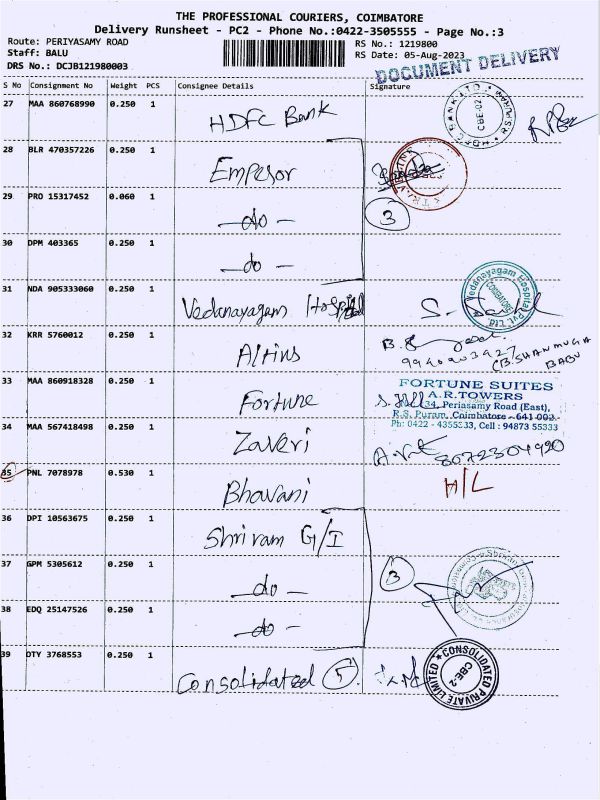 THE PROFESSIONAL COURIERS, COIMBATORE
Delivery Runsheet - PC2 - Phone No.:0422-3505555 - Page No.:3
Route: PERIYASAMY ROAD
RS No.: 1219800
Staff: BALU
RS Date: 05-Aug-2023
DRS No.: DCJB121980003
DOCUMENT DELIVERY
S No Consignment No Weight PCS Consignee Details Signature
27 MAA 860768990 0.250 1 HDFC Bank
HDFC BANK LTD CBE-02
28 BLR 470357226 0.250 1 Emperor
29 PRO 15317452 0.060 1 -do-
3
30 DPM 403365 0.250 1 -do-
31 NDA 905333060 0.250 1 Vedanayagam Hospital
Vedanayagam Hospital Pvt. Ltd. COIMBATORE
32 KRR 5760012 0.250 1
(B.SHANMUGA BABU
33 MAA 860918328 0.250 1 Fortune
FORTUNE SUITES
A.R.TOWERS
34, Periasamy Road (East),
R.S. Puram, Coimbatore - 641 002.
Ph: 0422 - 4355533, Cell : 94873 55333
34 MAA 567418498 0.250 1 Zaveri
8072304920
35 PNL 7078978 0.530 1 Bhavani H/L
36 DPI 10563675 0.250 1 Shriram G/I
37 GPM 5305612 0.250 1 -do-
3
38 EDQ 25147526 0.250 1 -do-
39 DTY 3768553 0.250 1 Consolidated 5
CONSOLIDATED PRIVATE LIMITED CBE-2